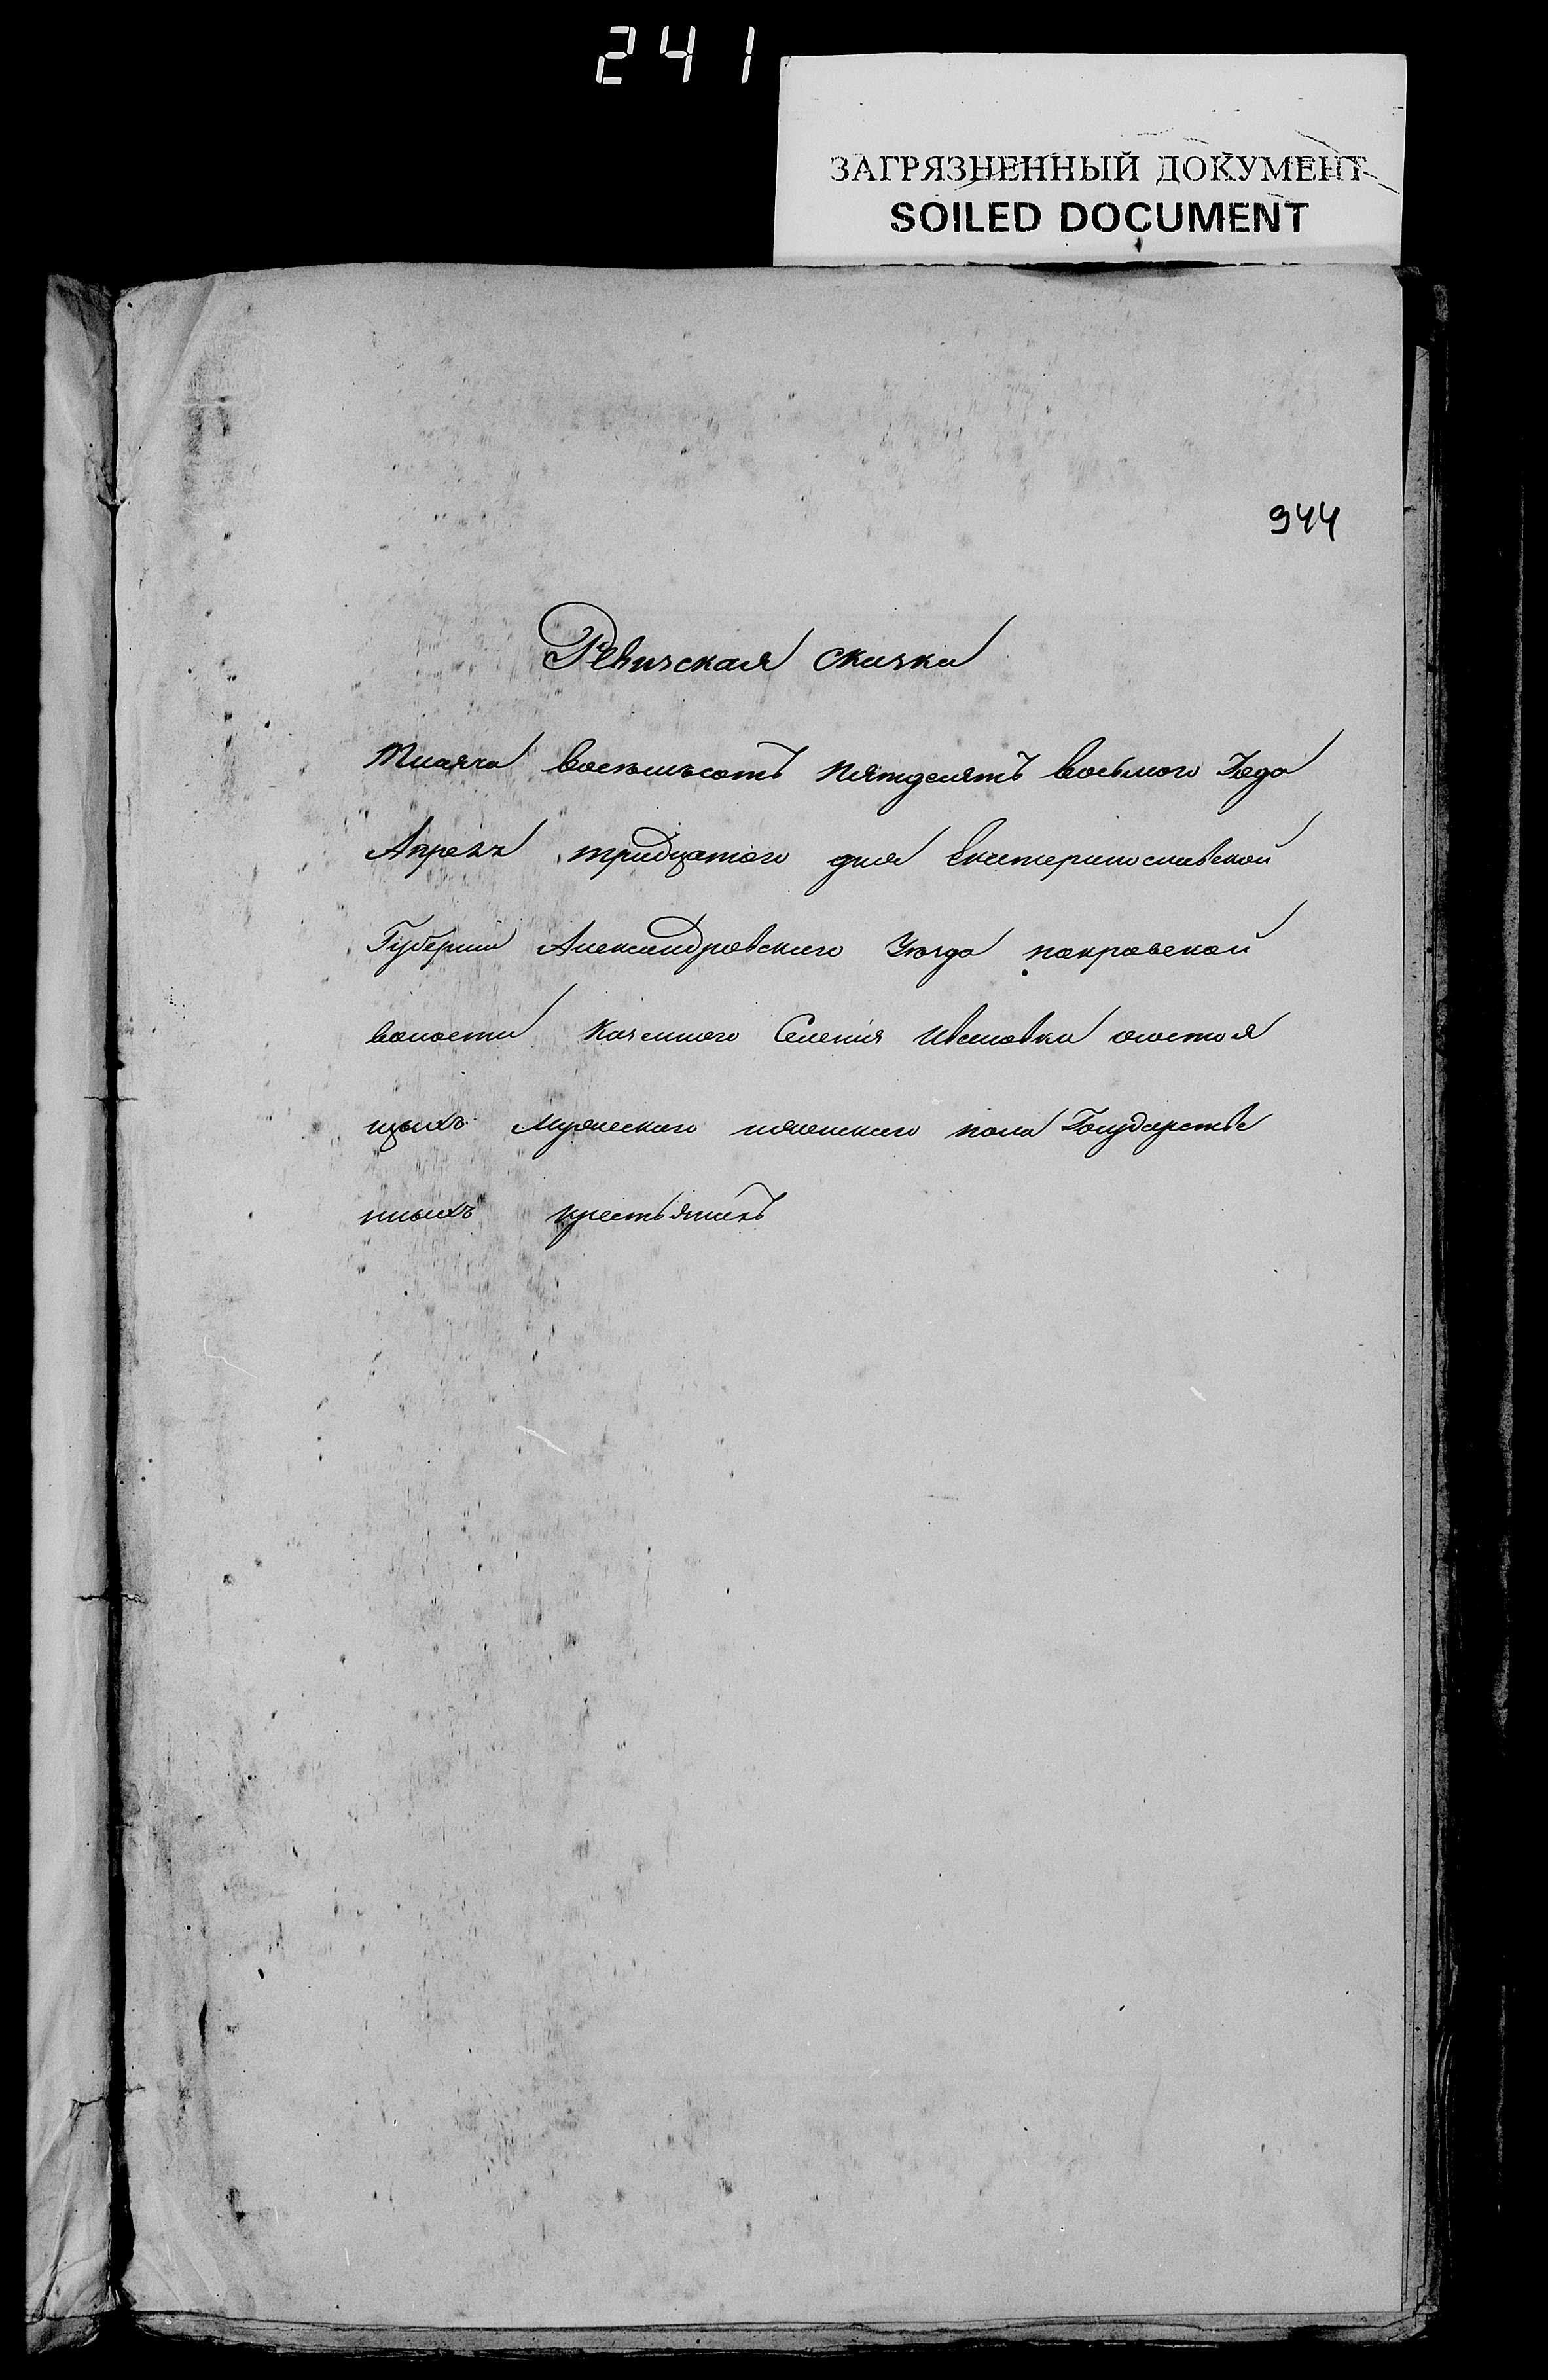 241
ЗАГРЯЗНЕННЫЙ ДОКУМЕНТ
SOILED DOCUMENT
944
Ревизская сказка
Тисяча восемьсотъ пятдесятъ восьмого Года
Апреля тридцатого дня Екатеринославской
Губернии Александровского Уезда покровской
волости Казенного Селения Ивановки состоя
щыхъ Мужеского иженского пола Государстве
нныхъ крестьянахъ